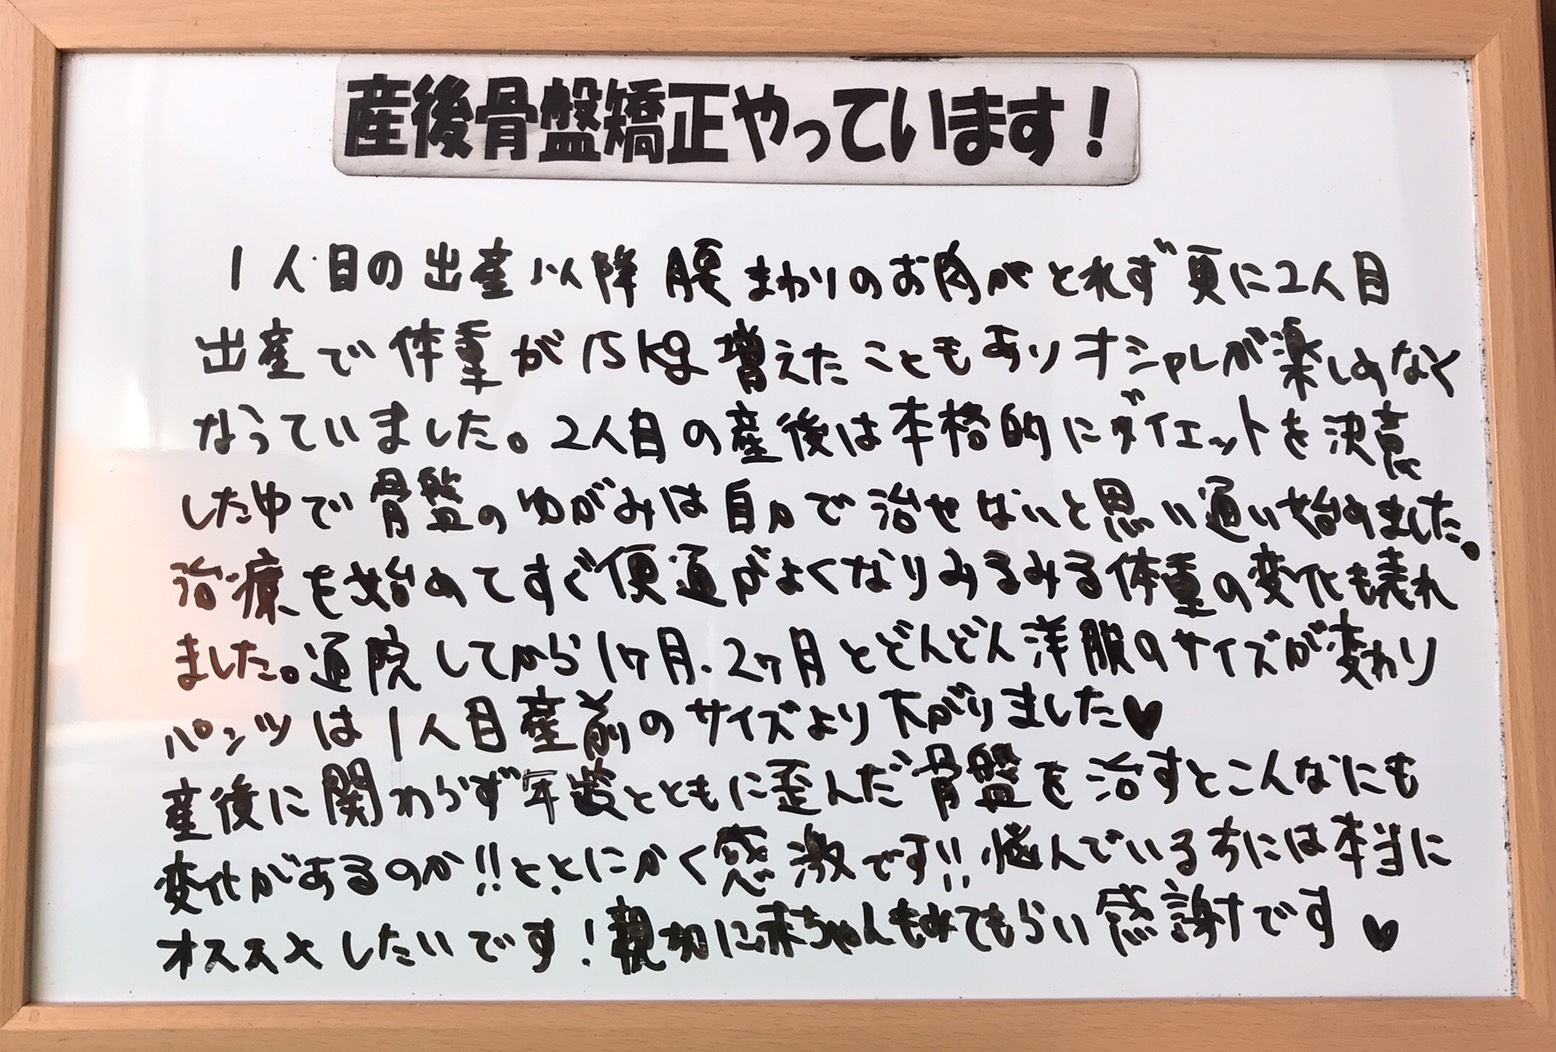 産後骨盤矯正やっています！
1人目の出産以降腰まわりのお肉がとれず更に2人目
出産で体重が15kg増えたこともありオシャレが楽しめなく
なっていました。2人目の産後は本格的にダイエットを決意
した中で骨盤のゆがみは自力で治せないと思い通い始めました。
治療を始めてすぐ便通がよくなりみるみる体重の変化も表れ
ました。通院してから1ヶ月、2ヶ月とどんどん洋服のサイズが変わり
パンツは1人目産前のサイズより下がりました♥
産後に関わらず年齢とともに歪んだ骨盤を治すとこんなにも
変化があるのか!!と、とにかく感激です!!悩んでいる方には本当に
オススメしたいです！親切に赤ちゃんもみてもらい感謝です♥